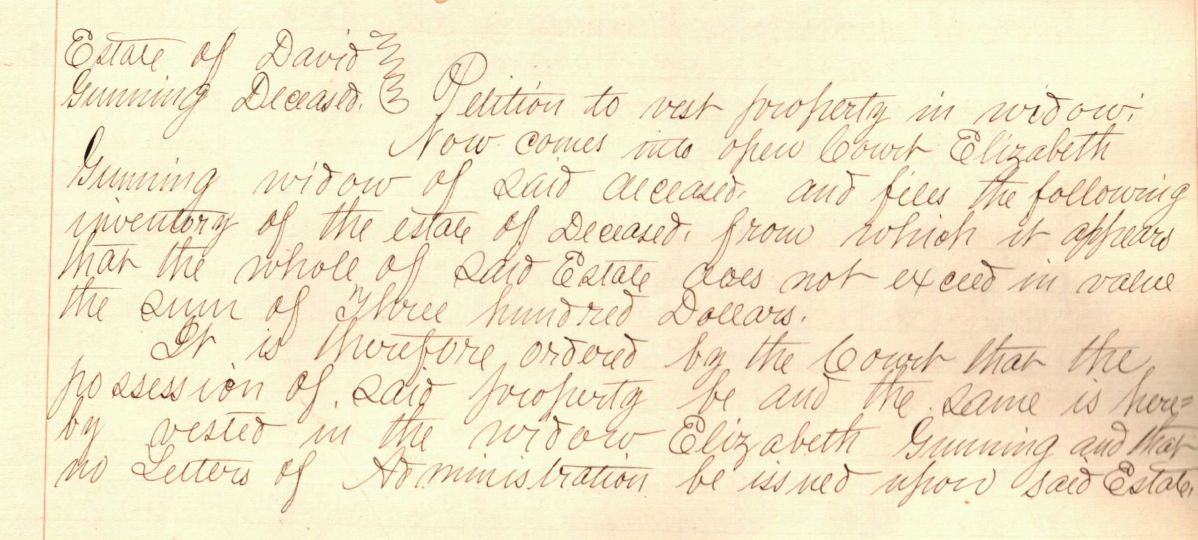 Estate of David
Gunning Deceased. Petition to vest property in widow.
Now comes into open Court Elizabeth
Gunning widow of said deceased. and files the following
inventory of the estate of Deceased. from which it appears
that the whole of said Estate does not exceed in value
the sum of Three hundred Dollars.
It is therefore ordered by the Court that the
possession of said property be and the same is here=
by vested in the widow Elizabeth Gunning and that
no Letters of Administration be issued upon said Estate.